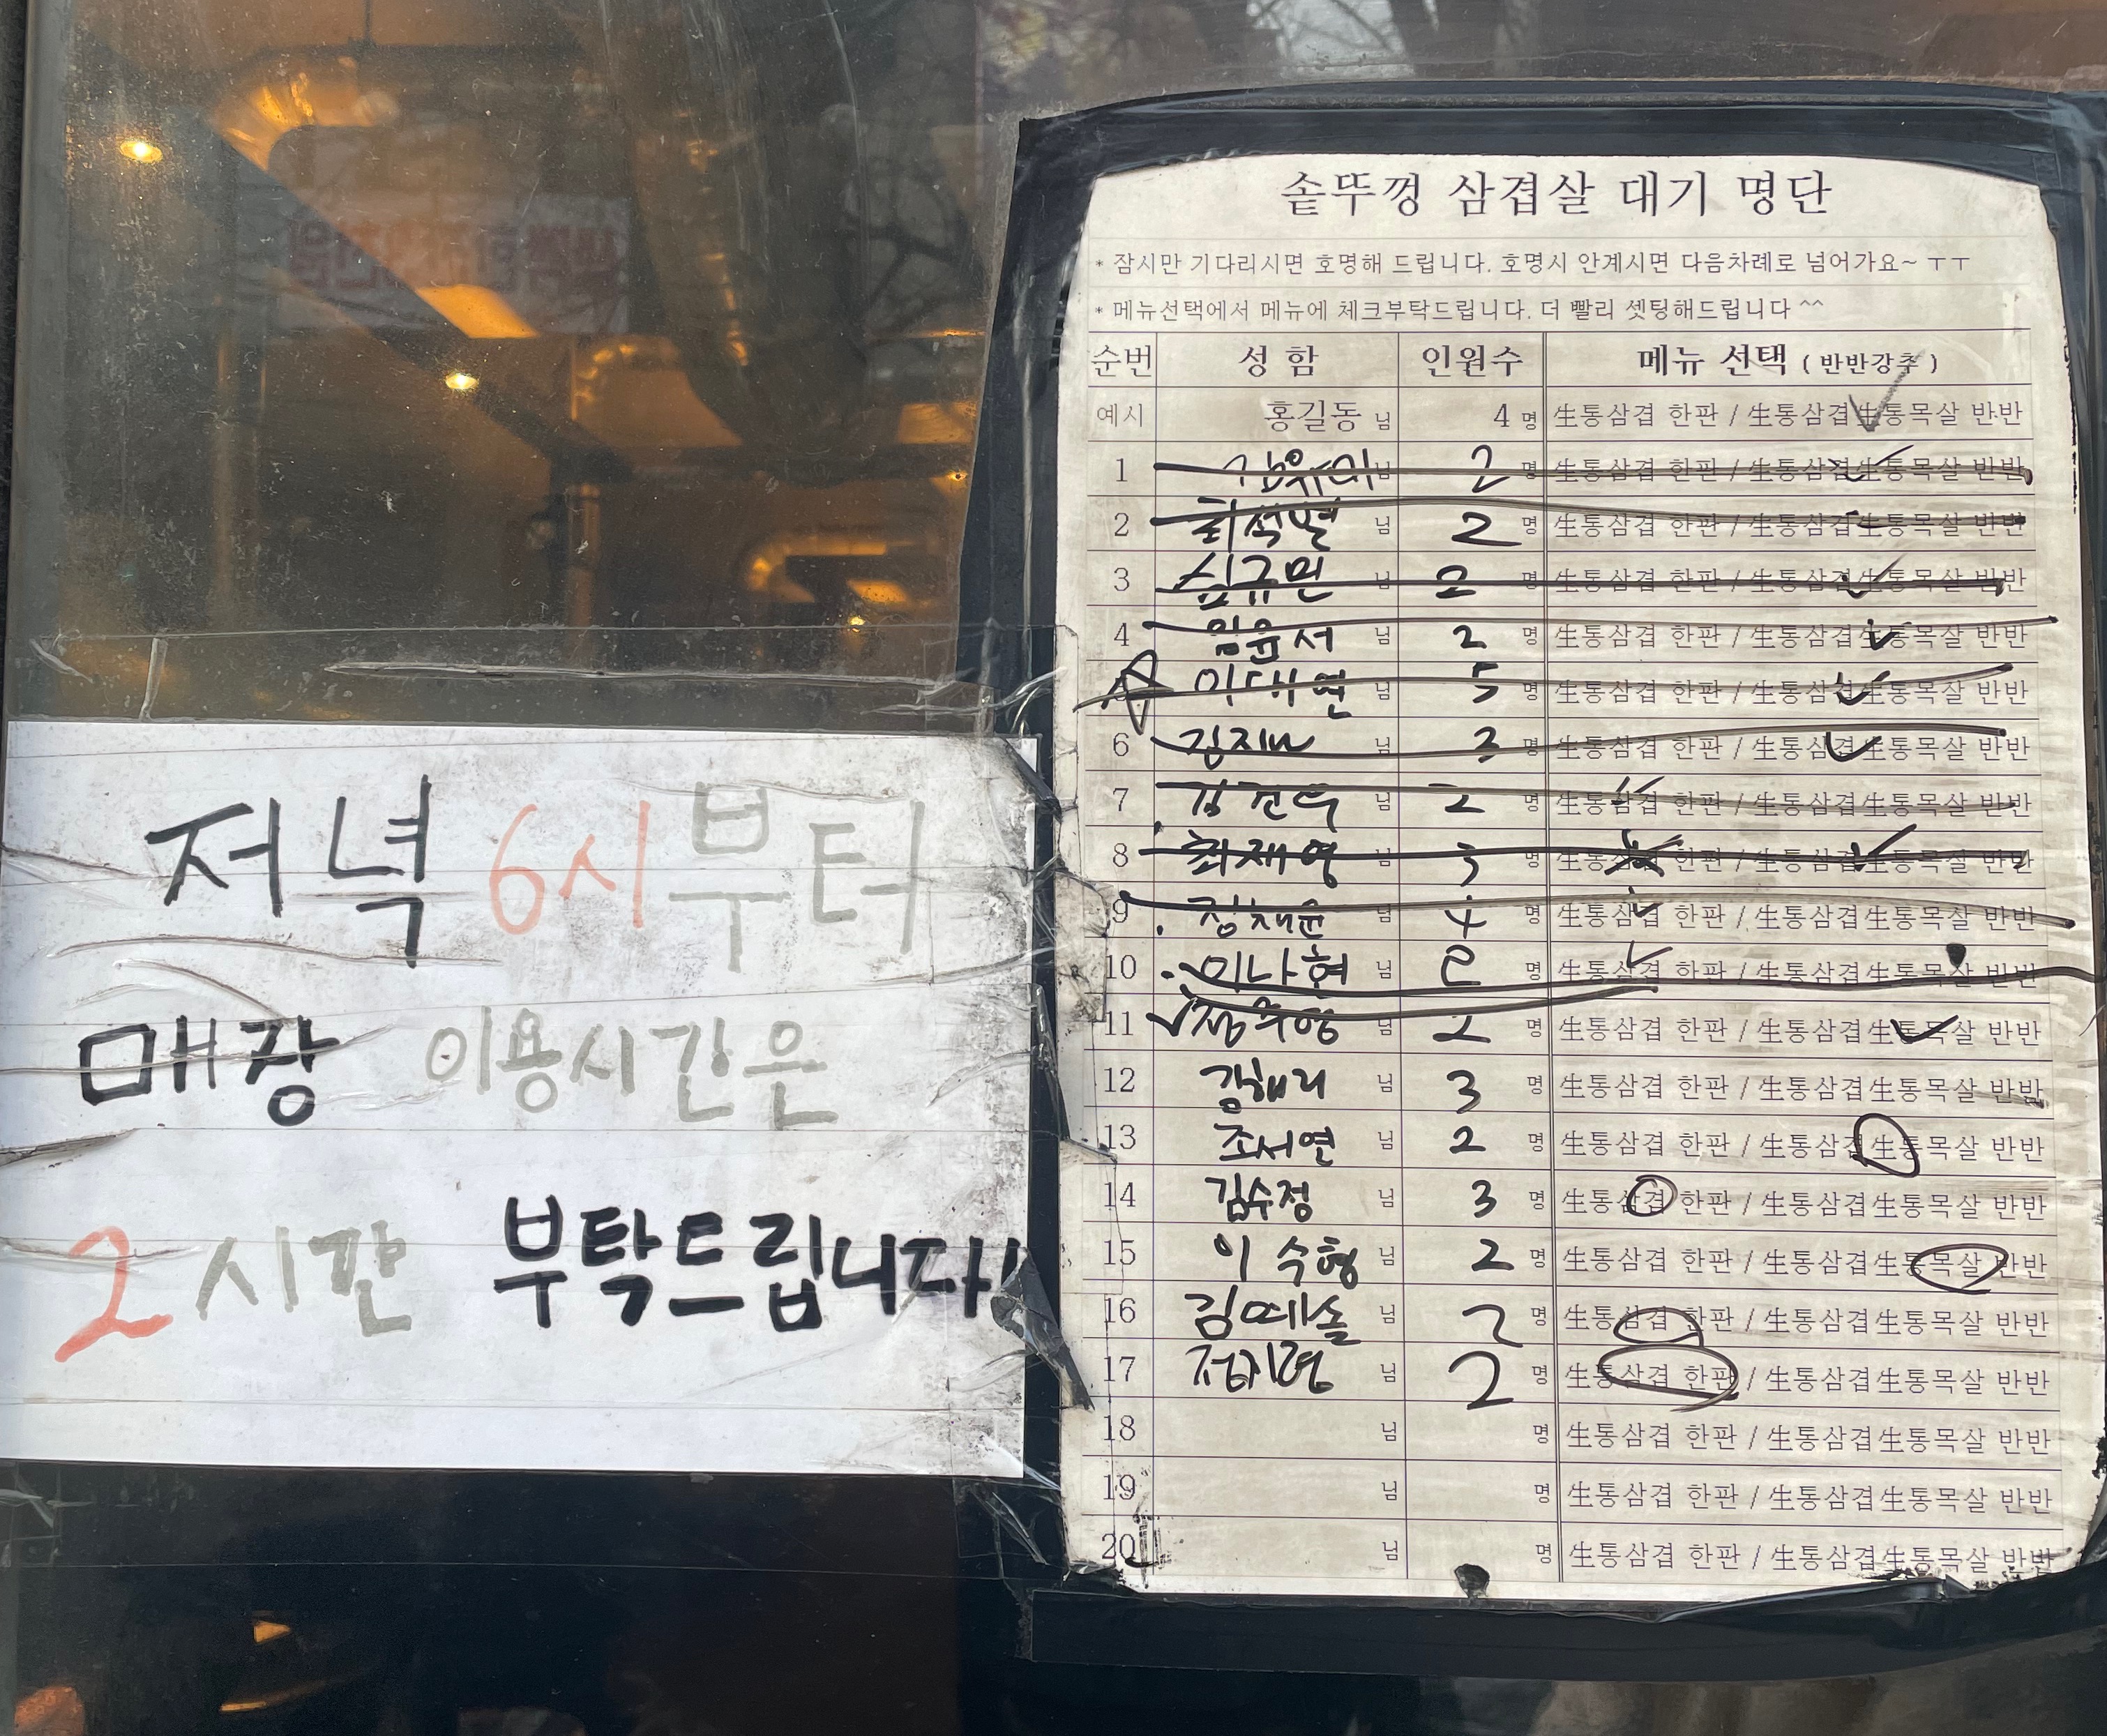 저녁 6시부터
매장 이용시간은
2시간 부탁드립니다!
솥뚜껑 삼겹살 대기 명단
* 잠시만 기다리시면 호명해 드립니다. 호명시 안계시면 다음차례로 넘어가요~ ㅜㅜ
* 메뉴선택에서 메뉴에 체크부탁드립니다. 더 빨리 셋팅해드립니다 ^^
순번 성 함 인원수 메뉴 선택 ( 반반강추 )
예시 홍길동 님 4 명 生통삼겹 한판 / 生통삼겹生통목살 반반
1 님 2 명 生통삼겹 한판 / 生통삼겹生통목살 반반
2 님 2 명 生통삼겹 한판 / 生통삼겹生통목살 반반
3 심규민 님 2 명 生통삼겹 한판 / 生통삼겹生통목살 반반
4 임윤서 님 2 명 生통삼겹 한판 / 生통삼겹生통목살 반반
이대연 님 5 명 生통삼겹 한판 / 生통삼겹生통목살 반반
6 님 3 명 生통삼겹 한판 / 生통삼겹生통목살 반반
7 님 2 명 生통삼겹 한판 / 生통삼겹生통목살 반반
8 최재영 님 3 명 生통삼겹 한판 / 生통삼겹生통목살 반반
9 님 4 명 生통삼겹 한판 / 生통삼겹生통목살 반반
10 이나현 님 2 명 生통삼겹 한판 / 生통삼겹生통목살 반반
11 님 2 명 生통삼겹 한판 / 生통삼겹生통목살 반반
12 님 3 명 生통삼겹 한판 / 生통삼겹生통목살 반반
13 조서연 님 2 명 生통삼겹 한판 / 生통삼겹生통목살 반반
14 김수정 님 3 명 生통삼겹 한판 / 生통삼겹生통목살 반반
15 이수형 님 2 명 生통삼겹 한판 / 生통삼겹生통목살 반반
16 김예솔 님 2 명 生통삼겹 한판 / 生통삼겹生통목살 반반
17 님 2 명 生통삼겹 한판 / 生통삼겹生통목살 반반
18 님 명 生통삼겹 한판 / 生통삼겹生통목살 반반
19 님 명 生통삼겹 한판 / 生통삼겹生통목살 반반
20 님 명 生통삼겹 한판 / 生통삼겹生통목살 반반